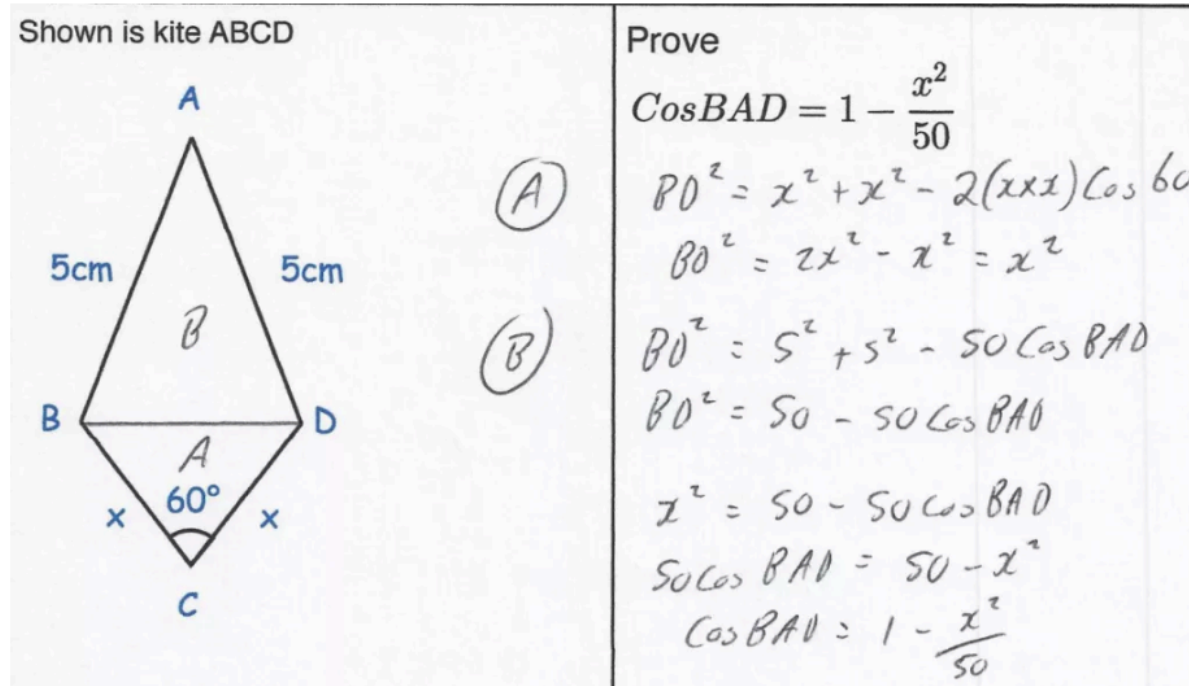 Shown is kite ABCD
A
5cm
5cm
B
B
D
A
60°
x
x
C
Prove
CosBAD = 1 - x²/50
(A)
BD² = x² + x² - 2(x×x) Cos 60
BD² = 2x² - x² = x²
(B)
BD² = 5² + 5² - 50 Cos BAD
BD² = 50 - 50 Cos BAD
x² = 50 - 50 Cos BAD
50 Cos BAD = 50 - x²
Cos BAD = 1 - x²/50